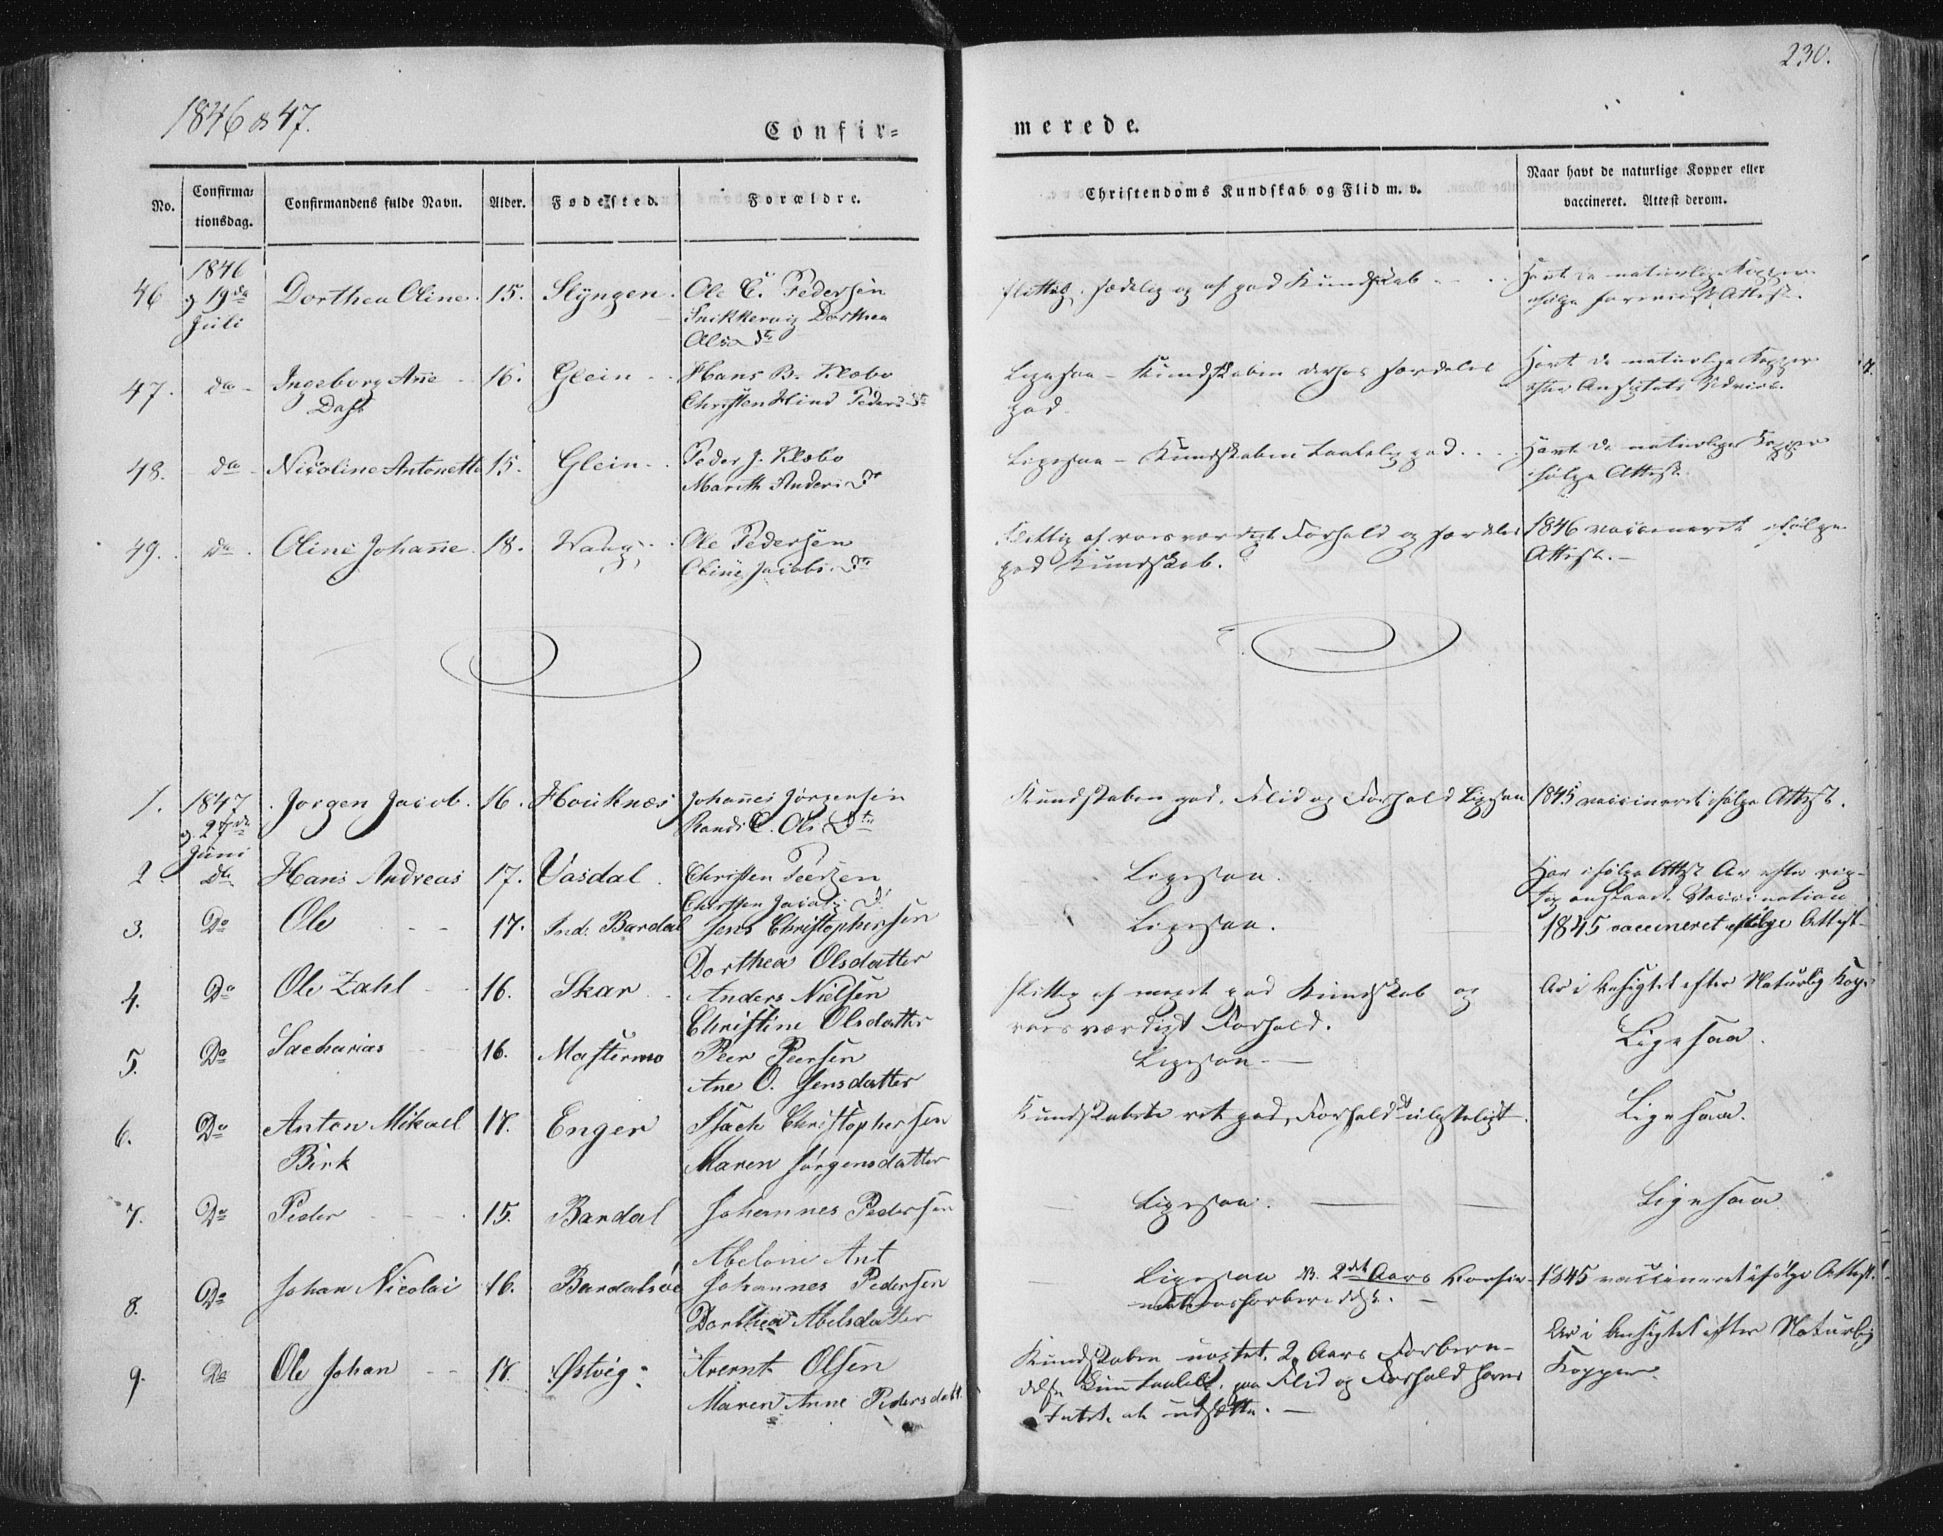 230.
1846 & 47.
Confir=
merede.
No.
Confirma=
tionsdag.
Confirmandens fulde Navn.
Alder.
Fødested.
Forældre.
Christendoms Kundskab og Flid m. v.
Naar havt de naturlige Kopper eller
vaccineret. Attest derom.
46
1846
19de
Juli
Dorthea Oline.
15.
Slyngen.
Ole C. Pedersen
Dorthea
Ols Dtr
flittig, sædelig og af god Kundskab
Havt de naturlige Kopper
ifølge Attest.
47.
do
Ingeborg Ane
Dass
16.
Glein
Hans B. Klæbo
Christen Hind Peders Dtr
Ligesaa - Kundskaben særdeles
god.
Havt de naturlige Kopper
efter Ansigtets Udvise.
48.
do
Nicoline Antonette
15.
Glein.
Peder J. Klæbo
Marith Anders Dr
Ligesaa - Kundskaben taalelig god.
Havt de naturlige Kopper
ifølge Attest.
49.
do
Oline Johanne.
18.
Waag.
Ole Pedersen
Oline Jacobs Dtr
Flittig af roesværdigt Forhold og særdeles
god Kundskab.
1846 vaccineret ifølge
Attest.
1.
1847
27de
Juni
Jørgen Jacob.
16.
Houknæs
Johannes Jørgensen
Randi C. Ols Dtr
Kundskaben god, Flid og Forhold ligesaa
1845 vaccineret ifølge Attest.
2
do
Hans Andreas
17.
Vasdal
Christen Peersen
Jacobs D.
Ligesaa.
Har ifølge Attest Ar efter rig-
tig Vaccination
3.
Do
Ole
17.
Ind: Bardal
Jens Christophersen
Dorthea Olsdatter
Ligesaa.
1845 vaccineret ifølge Attest
4.
Do
Ole Zahl
16.
Skar
Anders Nielsen
Christine Olsdatter
flittig af meget god Kundskab og
roesværdigt Forhold.
Ar i Ansigtet efter Naturlig Kop
5.
Do
Sacharias
16.
Mastermo
Peer Peersen
Ane O. Jensdatter
Ligesaa
Ligesaa.
6.
Do
Anton Mikael
Birk
17.
Enger
Isach Christophersen
Maren Jørgensdatter
Kundskaben ret god, Forhold
Ligesaa.
7.
Do
Peder
15.
Bardal
Johannes Pedersen
Abelone Ant
Ligesaa.
Ligesaa
8.
Do
Johan Nicolai
16.
Bardalsøe
Johannes Pedersen
Dorthea Abelsdatter
Ligesaa N. 2det Aars Confir-
mationsforberedelse.
1845 vaccineret ifølge Attest.
9.
Do
Ole Johan
17.
Østvig
Arernt Olsen
Maren Anne Pedersdatt
Kundskaben maadel. 2 Aars Forbere-
delse paa Flid og Forhold haves
Intet at udsætte.
Ar i Ansigtet efter Naturlig
Kopper